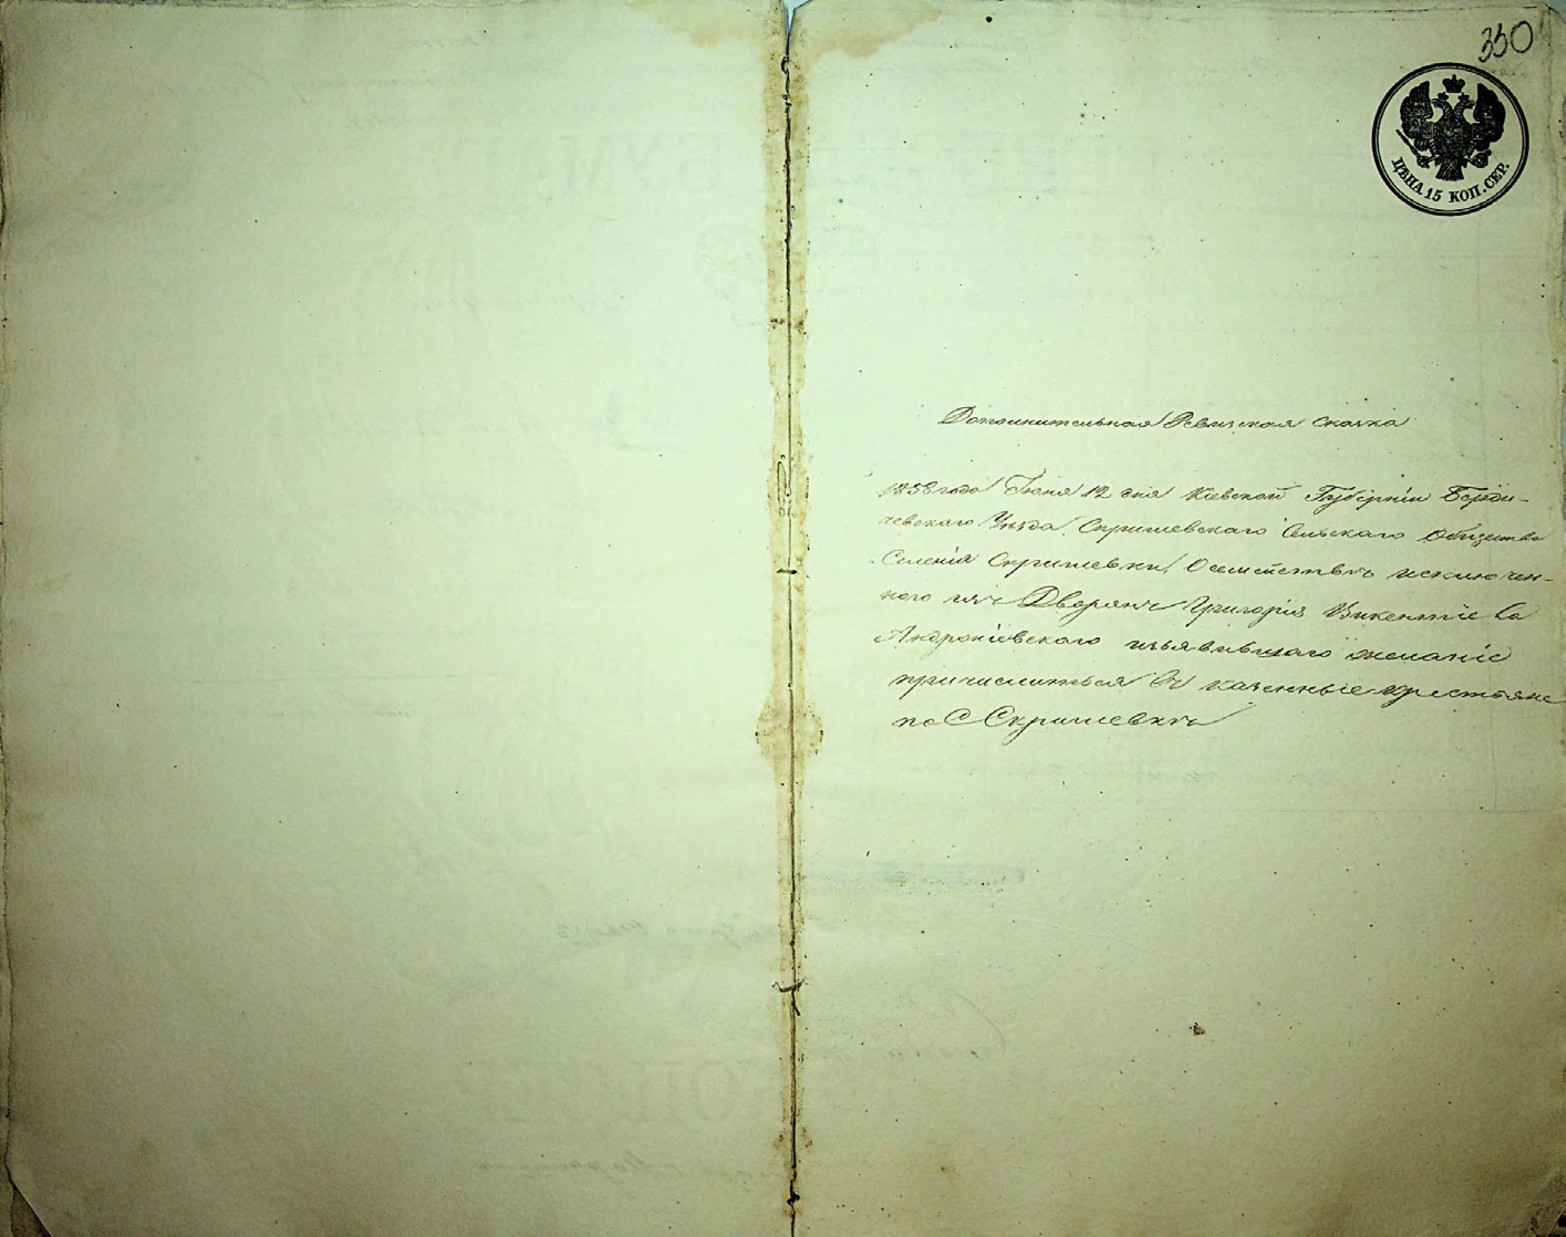 330
ЦѢНА 15 КОП. СЕР.
Дополнительная Ревизская сказка
1858 года Июня 12 дня Кіевской Губерніи Берди-
чевскаго Уѣзда Скрыгиевскаго Сельскаго Общества
Селенія О семействѣ исключен-
ного изъ Дворянъ Григорія Викентіева
Андроніовскаго изъявившаго желаніе
причислиться въ казенные крестьяне
по С